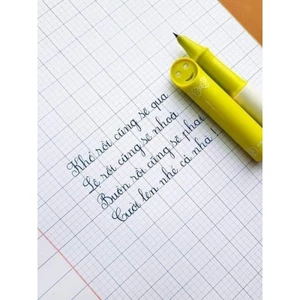 Khó rồi cũng sẽ qua
Lệ rồi cũng sẽ nhoà
Buồn rồi cũng sẽ phai
Cười lên nhé cả nhà!